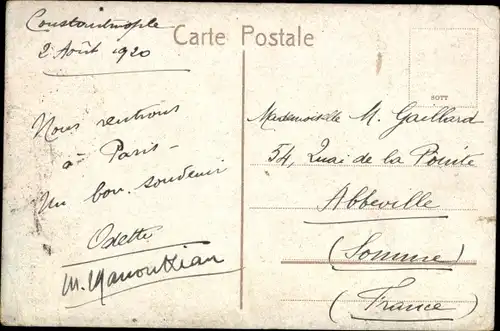 Constantinople
2 Août 1920
Carte Postale
SOTT
Nous rentrons
à Paris -
Un bon souvenir
Odette
M. Manoukian
Mademoiselle M. Gaillard
54, Quai de la Pointe
Abbeville
(Somme)
(France)